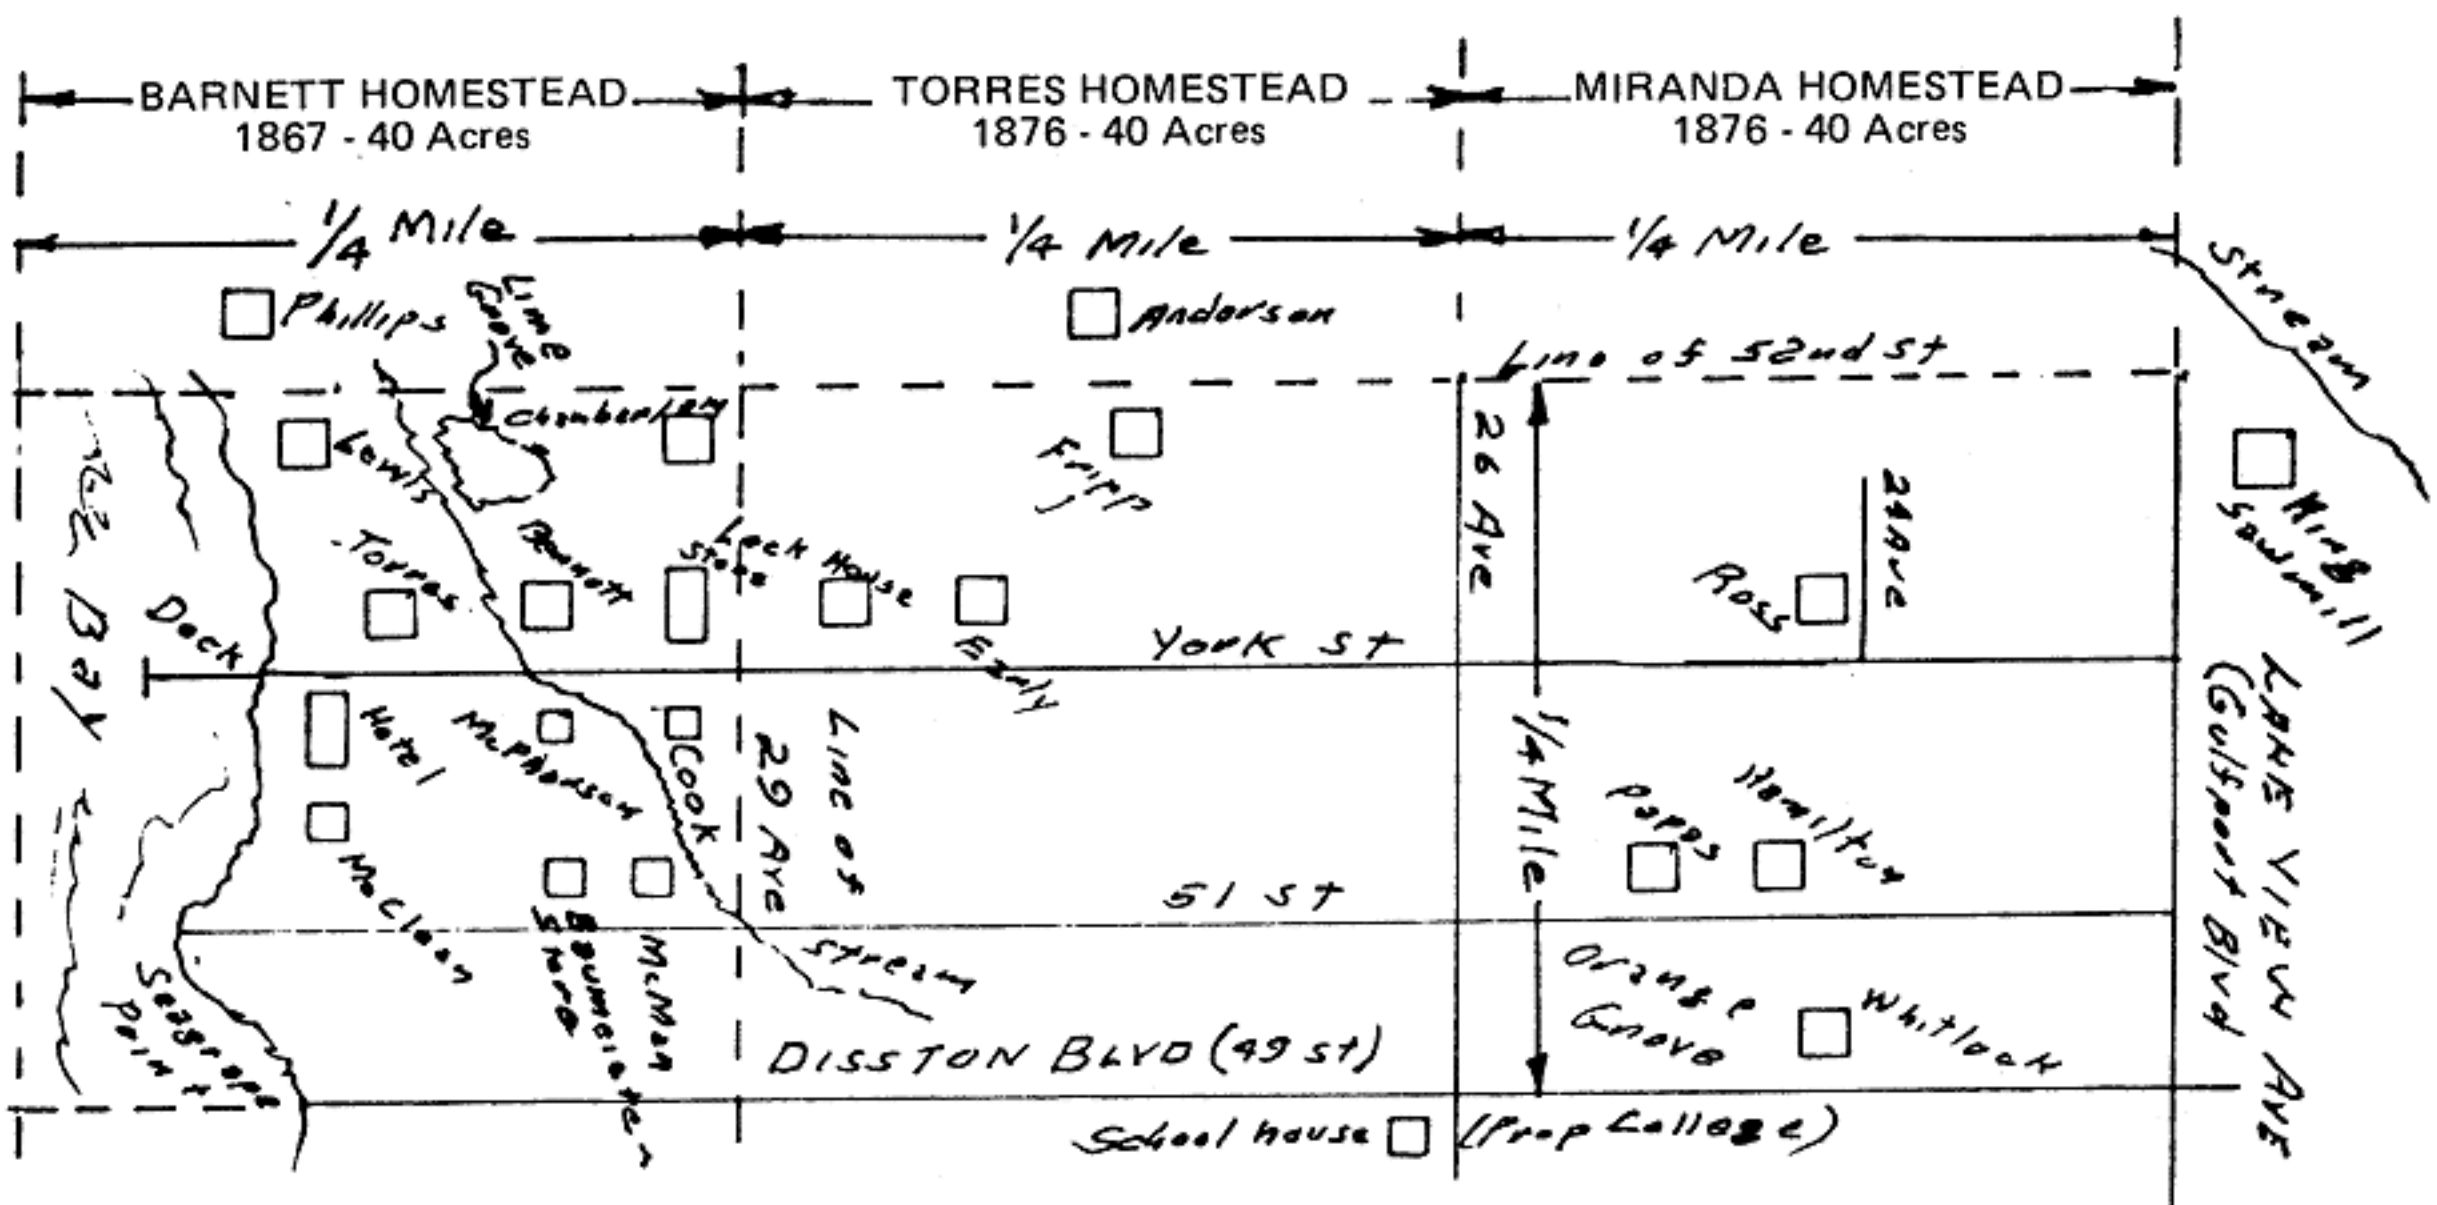 BARNETT HOMESTEAD
1867 - 40 Acres
TORRES HOMESTEAD
1876 - 40 Acres
MIRANDA HOMESTEAD
1876 - 40 Acres
1/4 Mile
1/4 Mile
1/4 Mile
Stream
Phillips
Lime
Grove
Anderson
Line of 52nd St
Lewis
Fripp
26 Ave
24 Ave
King
Sawmill
Torres
Barnett
Store
Lock House
Early
Ross
Dock
York St
Bay
Hotel
McPherson
Cook
Line of
29 Ave
1/4 Mile
Hamilton
LAKE VIEW AVE
(Gulfport Blvd
McClean
Store
McMan
51 St
Stream
Orange
Grove
Whitlock
Point
DISSTON BLVD (49 St)
School house
(Prop College)